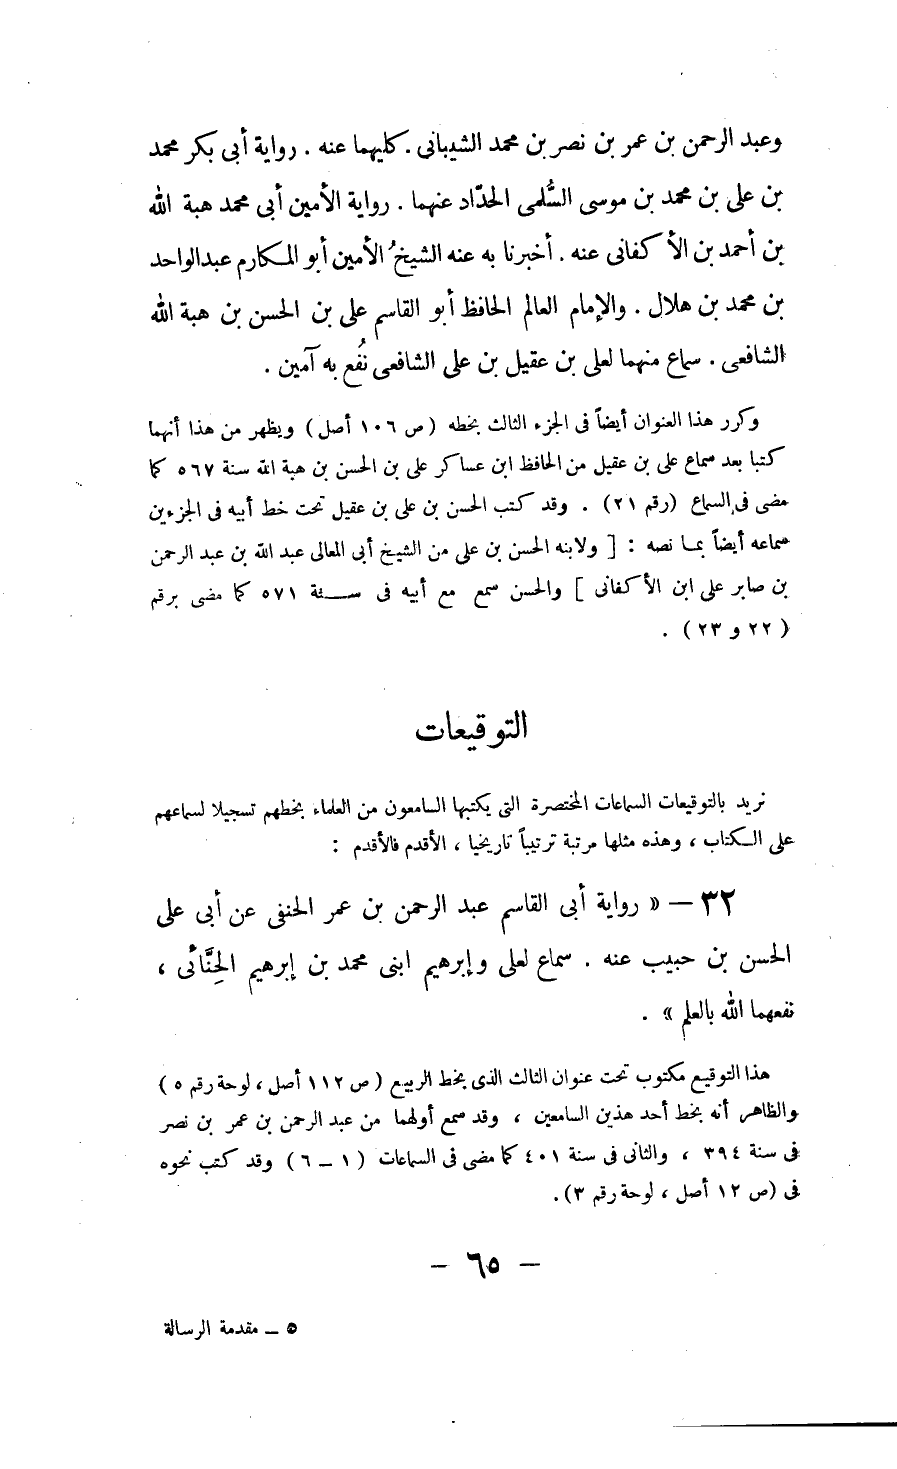 وعبد الرحمن بن عمر بن نصر بن محمد الشيبانى . كليهما عنه . رواية أبى بكر محمد
بن على بن محمد بن موسى السُّلمى الحدّاد عنهما . رواية الأمين أبى محمد هبة الله
بن أحمد بن الأكفانى عنه . أخبرنا به عنه الشيخُ الأمين أبو المكارم عبدالواحد
بن محمد بن هلال . والإمام العالم الحافظ أبو القاسم على بن الحسن بن هبة الله
الشافعى . سماع منهما لعلى بن عقيل بن على الشافعى نُفع به آمين .
وكرر هذا العنوان أيضاً فى الجزء الثالث بخطه (ص ١٠٦ أصل) ويظهر من هذا أنهما
كتبا بعد سماع على بن عقيل من الحافظ ابن عساكر على بن الحسن بن هبة الله سنة ٥٦٧ كما
مضى فى السماع (رقم ٢١) . وقد كتب الحسن بن على بن عقيل تحت خط أبيه فى الجزءين
سماعه أيضاً بما نصه : [ ولابنه الحسن بن على من الشيخ أبى المعالى عبد الله بن عبد الرحمن
بن صابر على ابن الأكفانى ] والحسن سمع مع أبيه فى سنة ٥٧١ كما مضى برقم
(٢٢ و ٢٣) .
التوقيعات
نريد بالتوقيعات السماعات المختصرة التى يكتبها السامعون من العلماء بخطهم تسجيلا لسماعهم
على الكتاب ، وهذه مثلها مرتبة ترتيباً تاريخيا ، الأقدم فالأقدم :
٣٢ — « رواية أبى القاسم عبد الرحمن بن عمر الحنفى عن أبى على
الحسن بن حبيب عنه . سماع لعلى وإبرهيم ابنى محمد بن إبرهيم الحِنَّائى ،
نفعهما الله بالعلم » .
هذا التوقيع مكتوب تحت عنوان الثالث الذى بخط الربيع (ص ١١٢ أصل ، لوحة رقم ٥)
والظاهر أنه بخط أحد هذين السامعين ، وقد سمع أولهما من عبد الرحمن بن عمر بن نصر
فى سنة ٣٩٤ ، والثانى فى سنة ٤٠١ كما مضى فى السماعات (١ — ٦) وقد كتب نحوه
فى (ص ١٢ أصل ، لوحة رقم ٣).
— ٦٥ —
٥ — مقدمة الرسالة